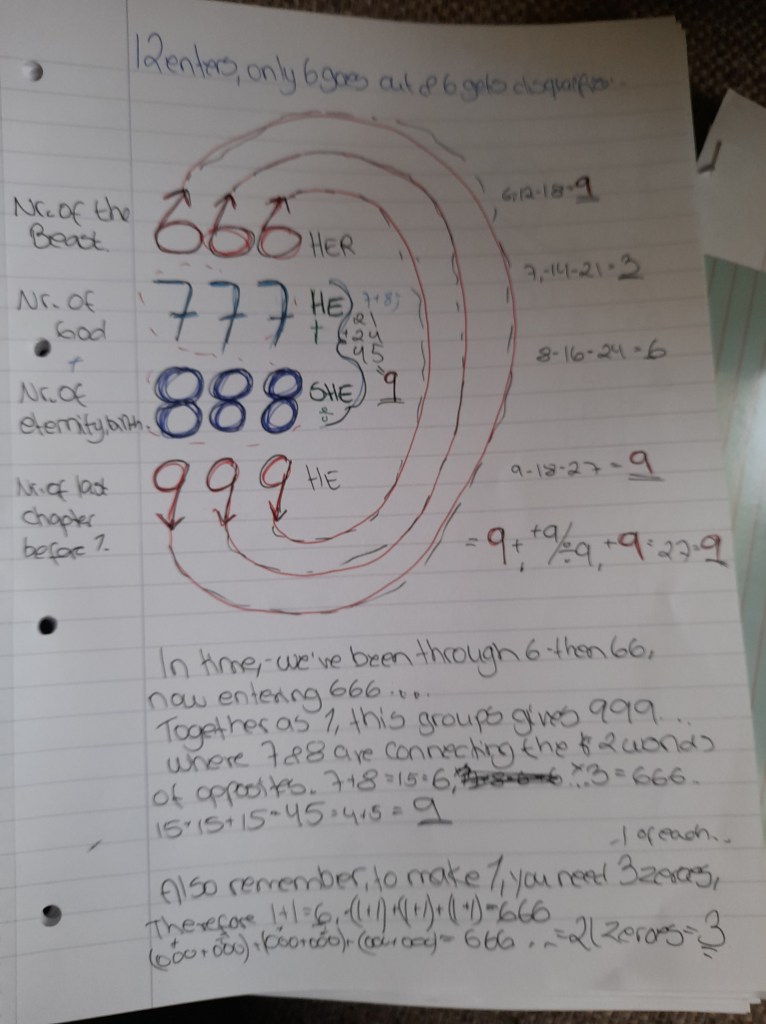 12 enters, only 6 goes out & 6 gets
6,12-18=9
Nr. of the
Beast.
666 HER
7,-14-21=3
Nr. of
God
777 HE
7+8;
+
21
24
45
8-16-24=6
+
Nr. of
eternity, birth.
888 SHE
9
Nr. of last
chapter
before 1.
999 HE
9-18-27=9
=9+, +9/÷9, +9=27=9
In time,-we've been through 6-then 66,
now entering 666....
Together as 1, this groups gives 999...
where 7&8 are connecting the 2 worlds
of opposites. 7+8=15=6, ×3=666.
15+15+15=45=4+5=9
1 of each...
Also remember, to make 1, you need 3 zeroes,
Therefore 1+1=6,-(1+1)+(1+1)+(1+1)=666
(000+000)+(000+000)+(000+000)=666 ...=21 zeroes=3